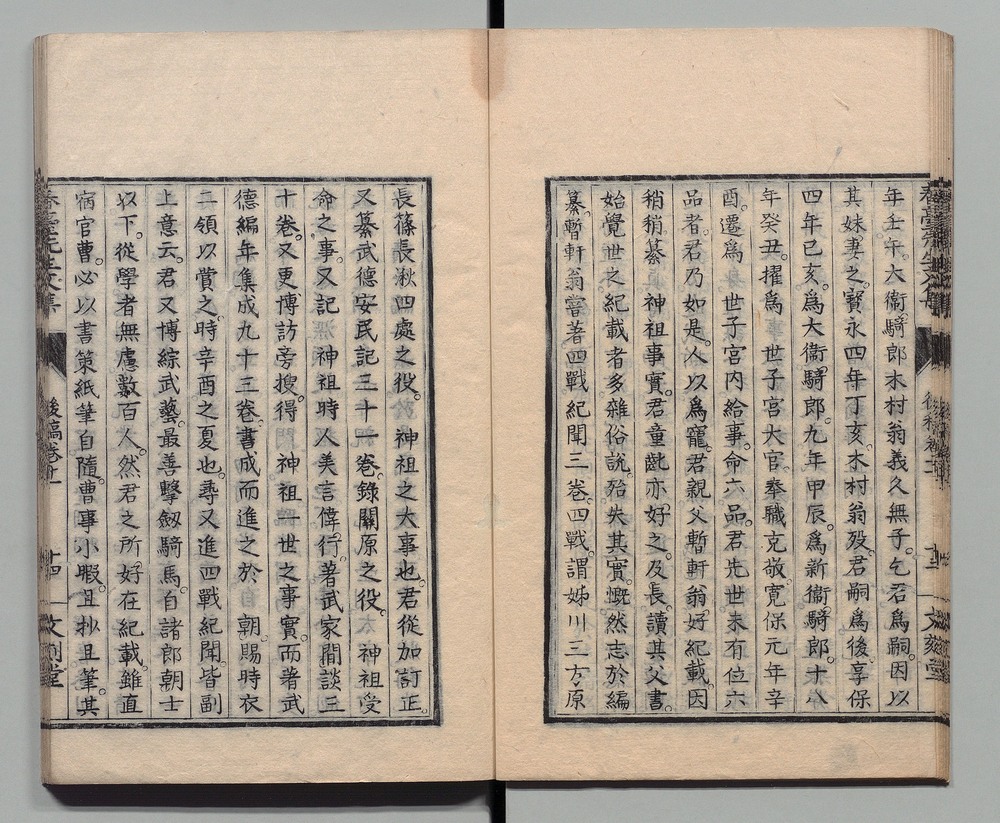 年壬午。大衞騎郎木村翁義久無子。乞君爲嗣。因以
其妹妻之。寶永四年丁亥。木村翁歿。君嗣爲後。享保
四年己亥。爲大衞騎郎。九年甲辰。爲新衞騎郎。十八
年癸丑。擢爲 世子宮大官。奉職克敬。寛保元年辛
酉。遷爲 世子宮内給事。命六品。君先世未有位六
品者。君乃如是。人以爲寵。君親父暫軒翁。好紀載。因
稍稍纂 神祖事實。君童齓亦好之。及長。讀其父書。
始覺世之紀載者多雜俗説。殆失其實。慨然志於編
纂。暫軒翁嘗著四戰紀聞三卷。四戰。謂姊川三方原
長篠長湫四處之役。神祖之大事也。君從加訂正。
又纂武德安民記三十一卷。錄關原之役。 神祖受
命之事。又記 神祖時人美言偉行。著武家閒談三
十卷。又更博訪旁搜。得 神祖一世之事實。而著武
德編年集成九十三卷。書成而進之於 朝。賜時衣
二領以賞之。時辛酉之夏也。尋又進四戰紀聞。皆副
上意云。君又博綜武藝。最善擊劔騎馬。自諸郎朝士
以下。從學者無慮數百人。然君之所好在紀載。雖直
宿官曹。必以書策紙筆自隨。曹事小暇。且抄且筆。其
春臺先生文集 後稿卷十一 十四 文刻堂